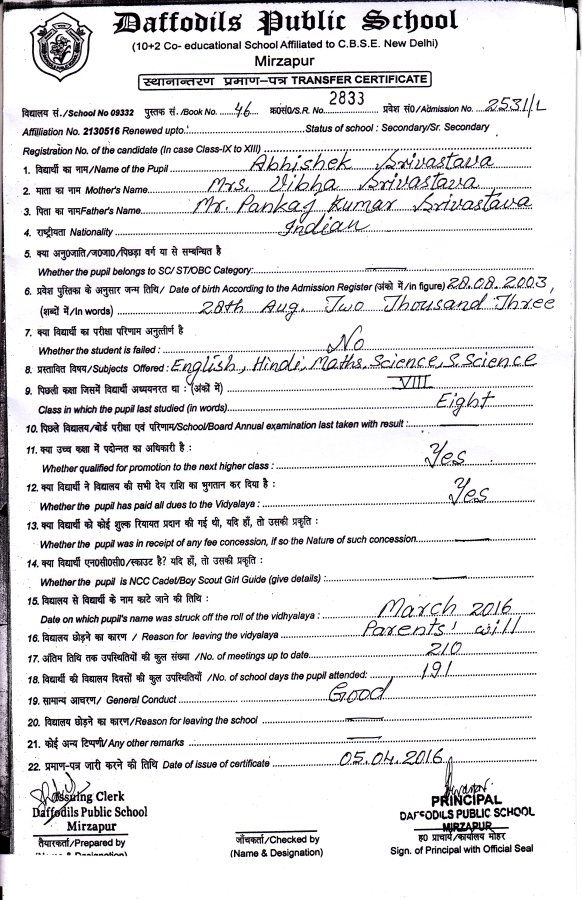 Daffodils Public School
(10+2 Co- educational School Affiliated to C.B.S.E. New Delhi)
Mirzapur
स्थानान्तरण प्रमाण-पत्र TRANSFER CERTIFICATE
विद्यालय सं./School No 09332 पुस्तक सं./Book No. 46 क्र०सं०/S.R. No. 2833 प्रवेश सं०/Admission No. 2531/L
Affiliation No. 2130516 Renewed upto. Status of school : Secondary/Sr. Secondary
Registration No. of the candidate (In case Class-IX to XIII)
1. विद्यार्थी का नाम/Name of the Pupil Abhishek Srivastava
2. माता का नाम Mother's Name Mrs. Vibha Srivastava
3. पिता का नामFather's Name Mr. Pankaj Kumar Srivastava
4. राष्ट्रीयता Nationality Indian
5. क्या अनु०जाति/ज०जा०/पिछड़ा वर्ग या से सम्बन्धित है
Whether the pupil belongs to SC/ ST/OBC Category: —
6. प्रवेश पुस्तिका के अनुसार जन्म तिथि/ Date of birth According to the Admission Register (अंको में/in figure) 28.08.2003,
(शब्दों में/In words) 28th Aug. Two Thousand Three
7. क्या विद्यार्थी का परीक्षा परिणाम अनुतीर्ण है
Whether the student is failed : No
8. प्रस्तावित विषय/Subjects Offered : English, Hindi, Maths, Science, S. Science
9. पिछली कक्षा जिसमें विद्यार्थी अध्ययनरत था : (अंकों में) VIII
Class in which the pupil last studied (in words) Eight
10. पिछले विद्यालय/बोर्ड परीक्षा एवं परिणाम/School/Board Annual examination last taken with result : —
11. क्या उच्च कक्षा में पदोन्नत का अधिकारी है :
Whether qualified for promotion to the next higher class : Yes
12. क्या विद्यार्थी ने विद्यालय की सभी देय राशि का भुगतान कर दिया है :
Whether the pupil has paid all dues to the Vidyalaya : Yes
13. क्या विद्यार्थी को कोई शुल्क रियायत प्रदान की गई थी, यदि हाँ, तो उसकी प्रकृति :
Whether the pupil was in receipt of any fee concession, if so the Nature of such concession. —
14. क्या विद्यार्थी एन०सी०सी०/स्काउट है? यदि हाँ, तो उसकी प्रकृति :
Whether the pupil is NCC Cadet/Boy Scout Girl Guide (give details) : —
15. विद्यालय से विद्यार्थी के नाम काटे जाने की तिथि :
Date on which pupil's name was struck off the roll of the vidhyalaya : March 2016
16. विद्यालय छोड़ने का कारण / Reason for leaving the vidyalaya Parents' will
17. अंतिम तिथि तक उपस्थितियों की कुल संख्या /No. of meetings up to date 210
18. विद्यार्थी की विद्यालय दिवसों की कुल उपस्थितियाँ /No. of school days the pupil attended: 191
19. सामान्य आचरण/ General Conduct Good
20. विद्यालय छोड़ने का कारण/Reason for leaving the school —
21. कोई अन्य टिप्पणी/Any other remarks —
22. प्रमाण-पत्र जारी करने की तिथि Date of issue of certificate 05.04.2016
Issuing Clerk
Daffodils Public School
Mirzapur
तैयारकर्ता/Prepared by
(Name & Designation)
जाँचकर्ता/Checked by
(Name & Designation)
PRINCIPAL
DAFFODILS PUBLIC SCHOOL
MIRZAPUR
ह० प्राचार्य/कार्यालय मोहर
Sign. of Principal with Official Seal